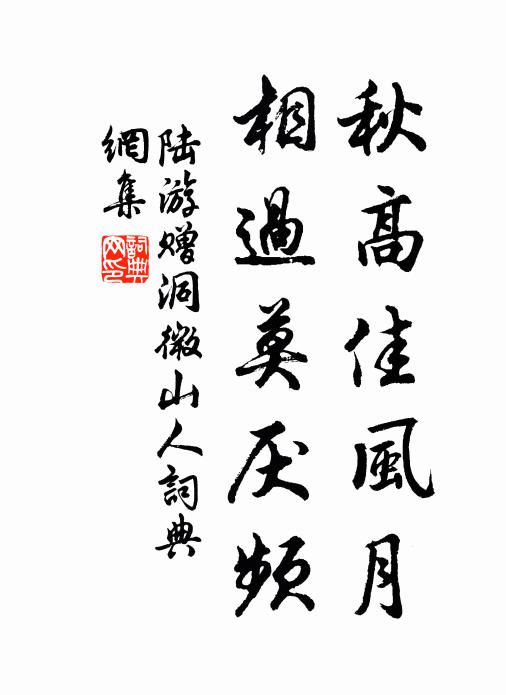 秋高佳風月
相過莫厌頻
陆游赠洞微山人詞典
網集
詞典
网印